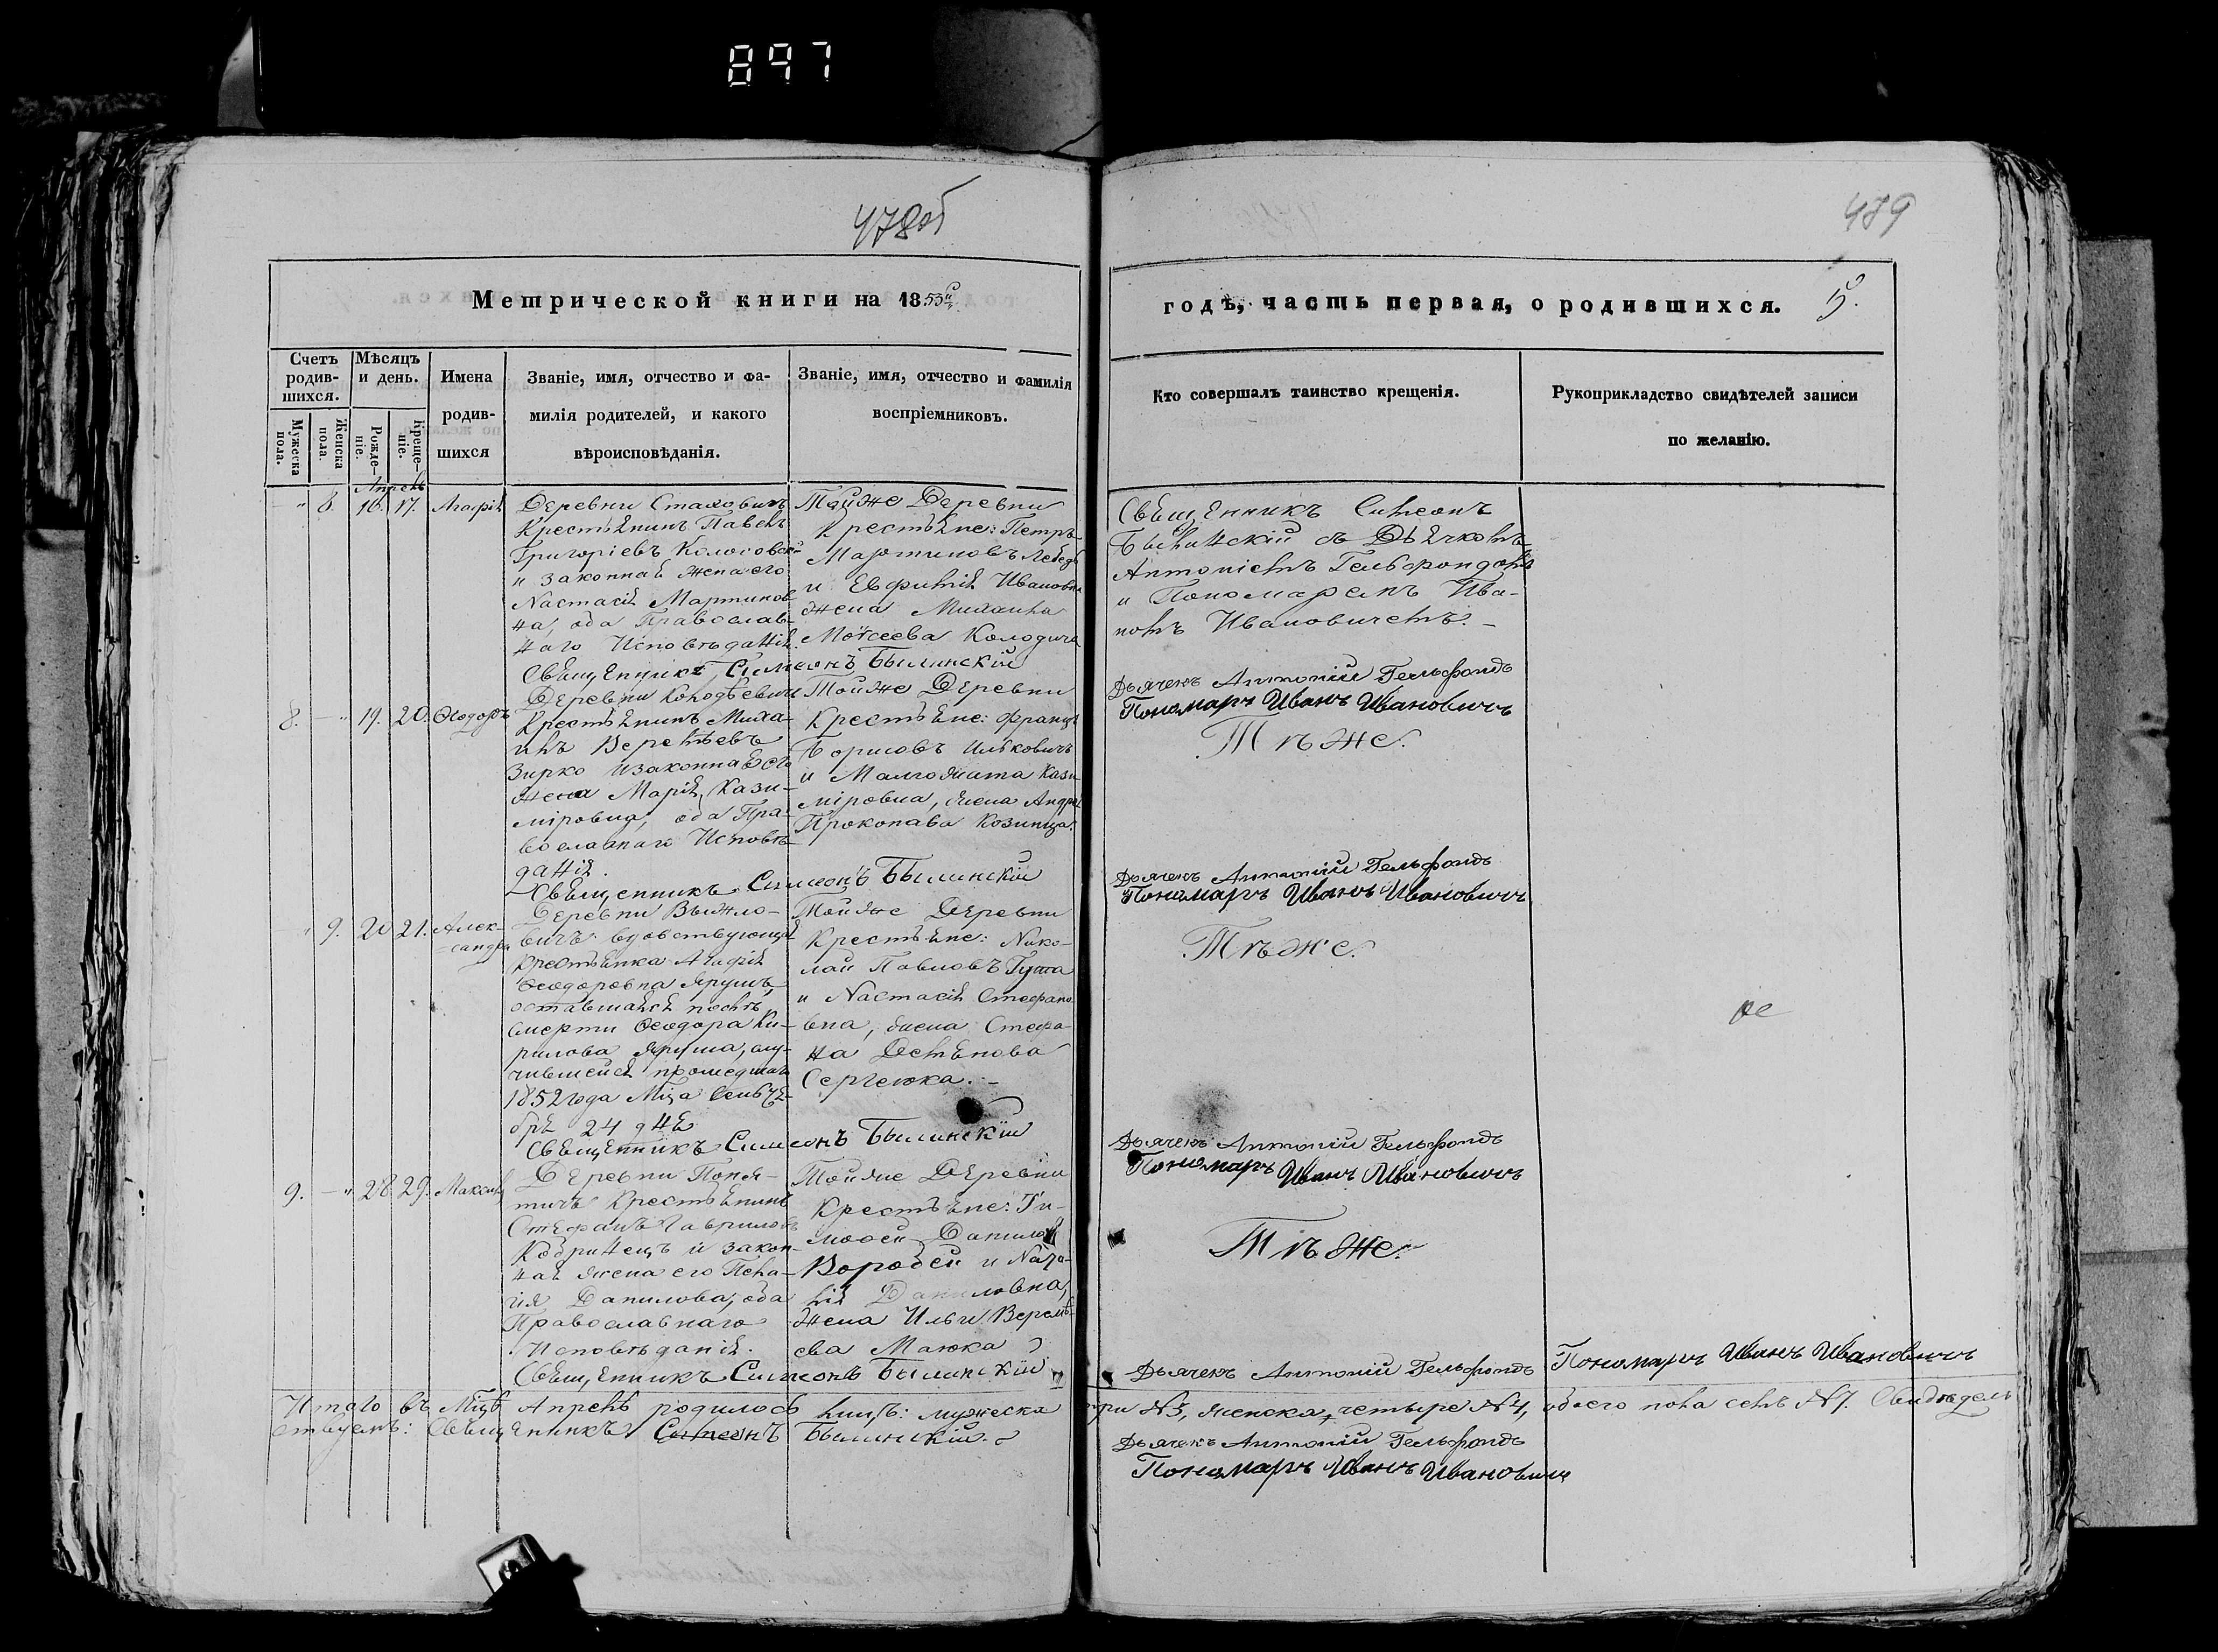 897
478об
479
Метрической книги на 1853й
годъ, часть первая, о родившихся.
5.
Счетъ родив-шихся.
Мѣсяцъ и день.
Имена родив-шихся
Званіе, имя, отчество и фа-
милія родителей, и какого
вѣроисповѣданія.
Званіе, имя, отчество и фамилія
воспріемниковъ.
Кто совершалъ таинство крещенія.
Рукоприкладство свидѣтелей записи
по желанію.
Мужеска пола.
Женска пола.
Рожде-ніе.
Креще-ніе.
Апрель
8. 16. 17. Агафія
Деревни Стаховичъ
Крестьянинъ Павелъ
Григоріевъ Колосовскій
и законная жена его
Настасія Мартинов-
на, оба Православ-
наго Исповѣданія.
Священникъ Симеонъ Былинскій
Тойже Деревни
Крестьяне: Петръ
Мартиновъ Лебедь
и Евфимія Ивановна
жена Михаила
Моѵсеева Колодича
Священникъ Симеонъ
Былинскій съ Дьячкомъ
Антоніемъ Гельфондомъ
и Пономаремъ Ива-
номъ Ивановичемъ.-
Дьячекъ Антоній Гельфондъ
Пономарь Иванъ Ивановичъ
8. 19. 20. Ѳеодоръ
Деревни Колодѣевичи
Крестьянинъ Миха-
илъ Веремѣевъ
Зирко и законная его
жена Марія Кази-
міровна, оба Пра-
вославнаго Исповѣ-
данія.
Священникъ Симеонъ Былинскій
Тойже Деревни
Крестьяне: Францъ
Борисовъ Илькович
и Малгожата Кази-
міровна, жена Андрея
Прокопава Козинца.
Тѣже.
Дьячекъ Антоній Гельфондъ
Пономарь Иванъ Ивановичъ
9. 20 21. Алек-
сандра
Деревни Выжло-
вичъ вдовствующая
крестьянка Агафія
Ѳеодоровна Ярушъ,
оставшаяся послѣ
смерти Ѳеодора Ки-
рилова Яруша, слу-
чившейся прошедшаго
1852 года Мца Сентя-
бря 24 дня
Священникъ Симеонъ Былинскій
Тойже Деревни
Крестьяне: Нико-
лай Павловъ Гута
и Настасія Стефано-
вна, жена Стефа-
на Демянова
Сергеюка.-
Тѣже.
Дьячекъ Антоній Гельфондъ
Пономарь Иванъ Ивановичъ
9. 28 29. Максимъ
Деревни Поня-
тичъ Крестьянинъ
Стефанъ Гавриловъ
Кобринецъ и закон-
ная жена его Пела-
гія Данилова, оба
Православнаго
Исповѣданія.
Священникъ Симеонъ Былинскій
Тойже Деревни
Крестьяне: Ти-
мофей Данилов
Воробей и Ната-
лія Даниловна,
жена Ильи Веремѣ-
ева Маюка
Тѣже.
Дьячекъ Антоній Гельфондъ
Пономарь Иванъ Ивановичъ
Итого въ Мцѣ Апрелѣ родилось лицъ: мужеска три №3, женска четыре №4, обоего пола семь №7. Свидѣтель-
ствуемъ: Священникъ Симеонъ Былинскій.
Дьячекъ Антоній Гельфондъ
Пономарь Иванъ Ивановичъ